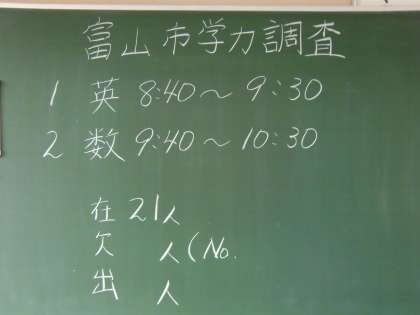 富山市学力調査
1 英 8:40～9:30
2 数 9:40～10:30
在 21人
欠 人(No.
出 人